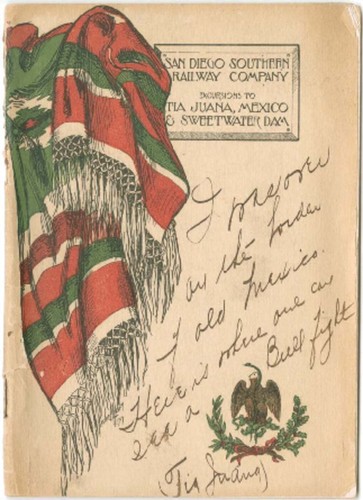 SAN DIEGO SOUTHERN
RAILWAY COMPANY
EXCURSIONS TO
TIA JUANA, MEXICO
& SWEETWATER DAM
I was over
on the border
of old Mexico.
Here is where one can
see a Bull fight
(Tia Juana)